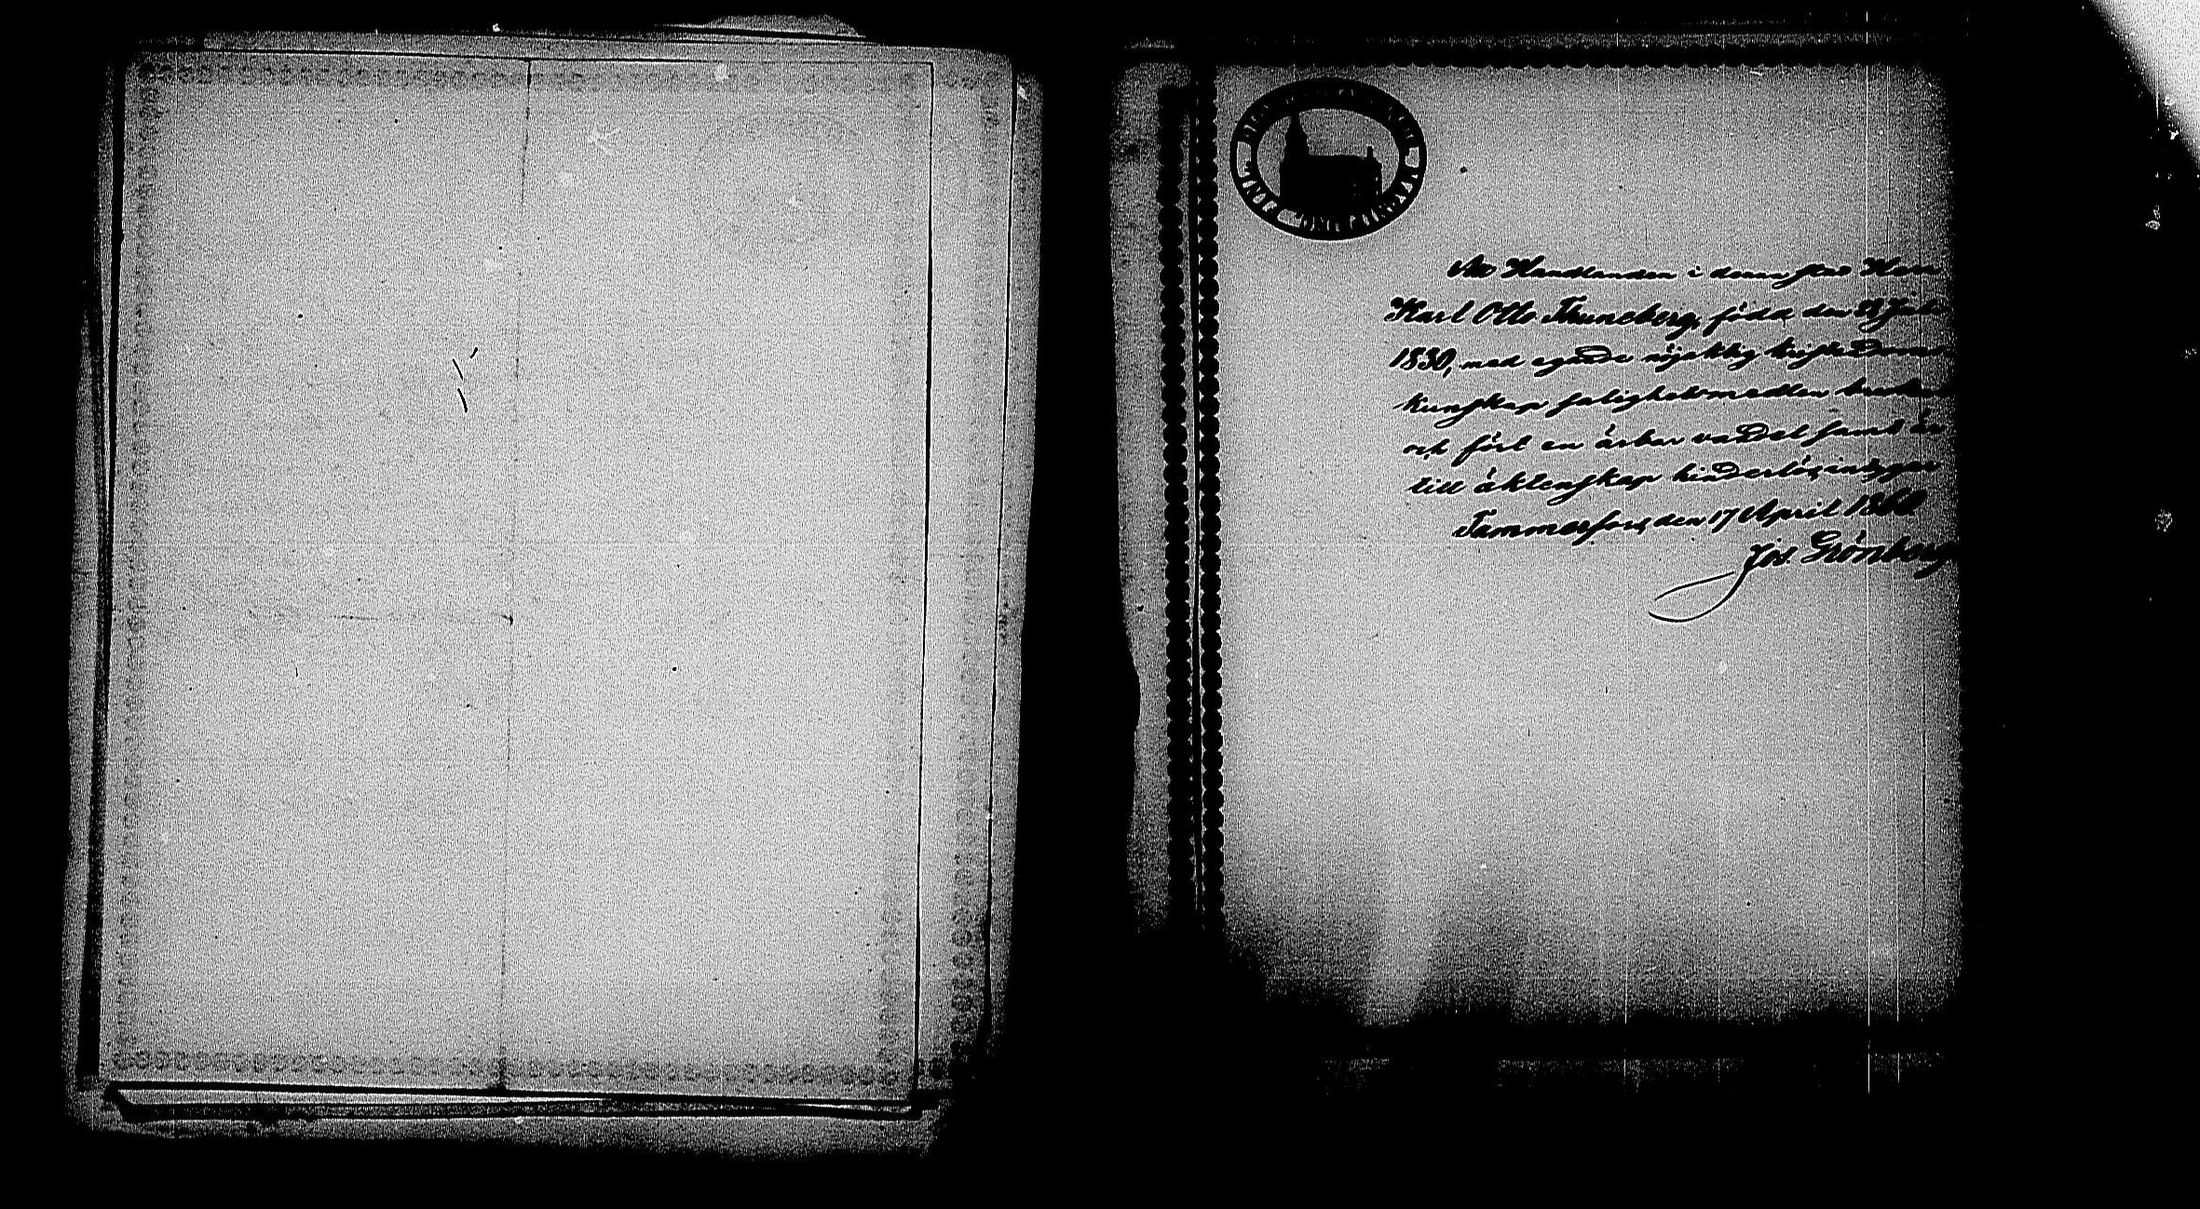 Att Handlanden i denna stad Herr
Karl Otto Thuneberg, född den 28 Juli
1830, med egande nöjaktig kristendoms
kunskap salighetsmedlen
och fört en ärbar vandel samt är
till äktenskap hinderlös, intygar
Tammerfors den 17 April 1860
Jos. Grönberg